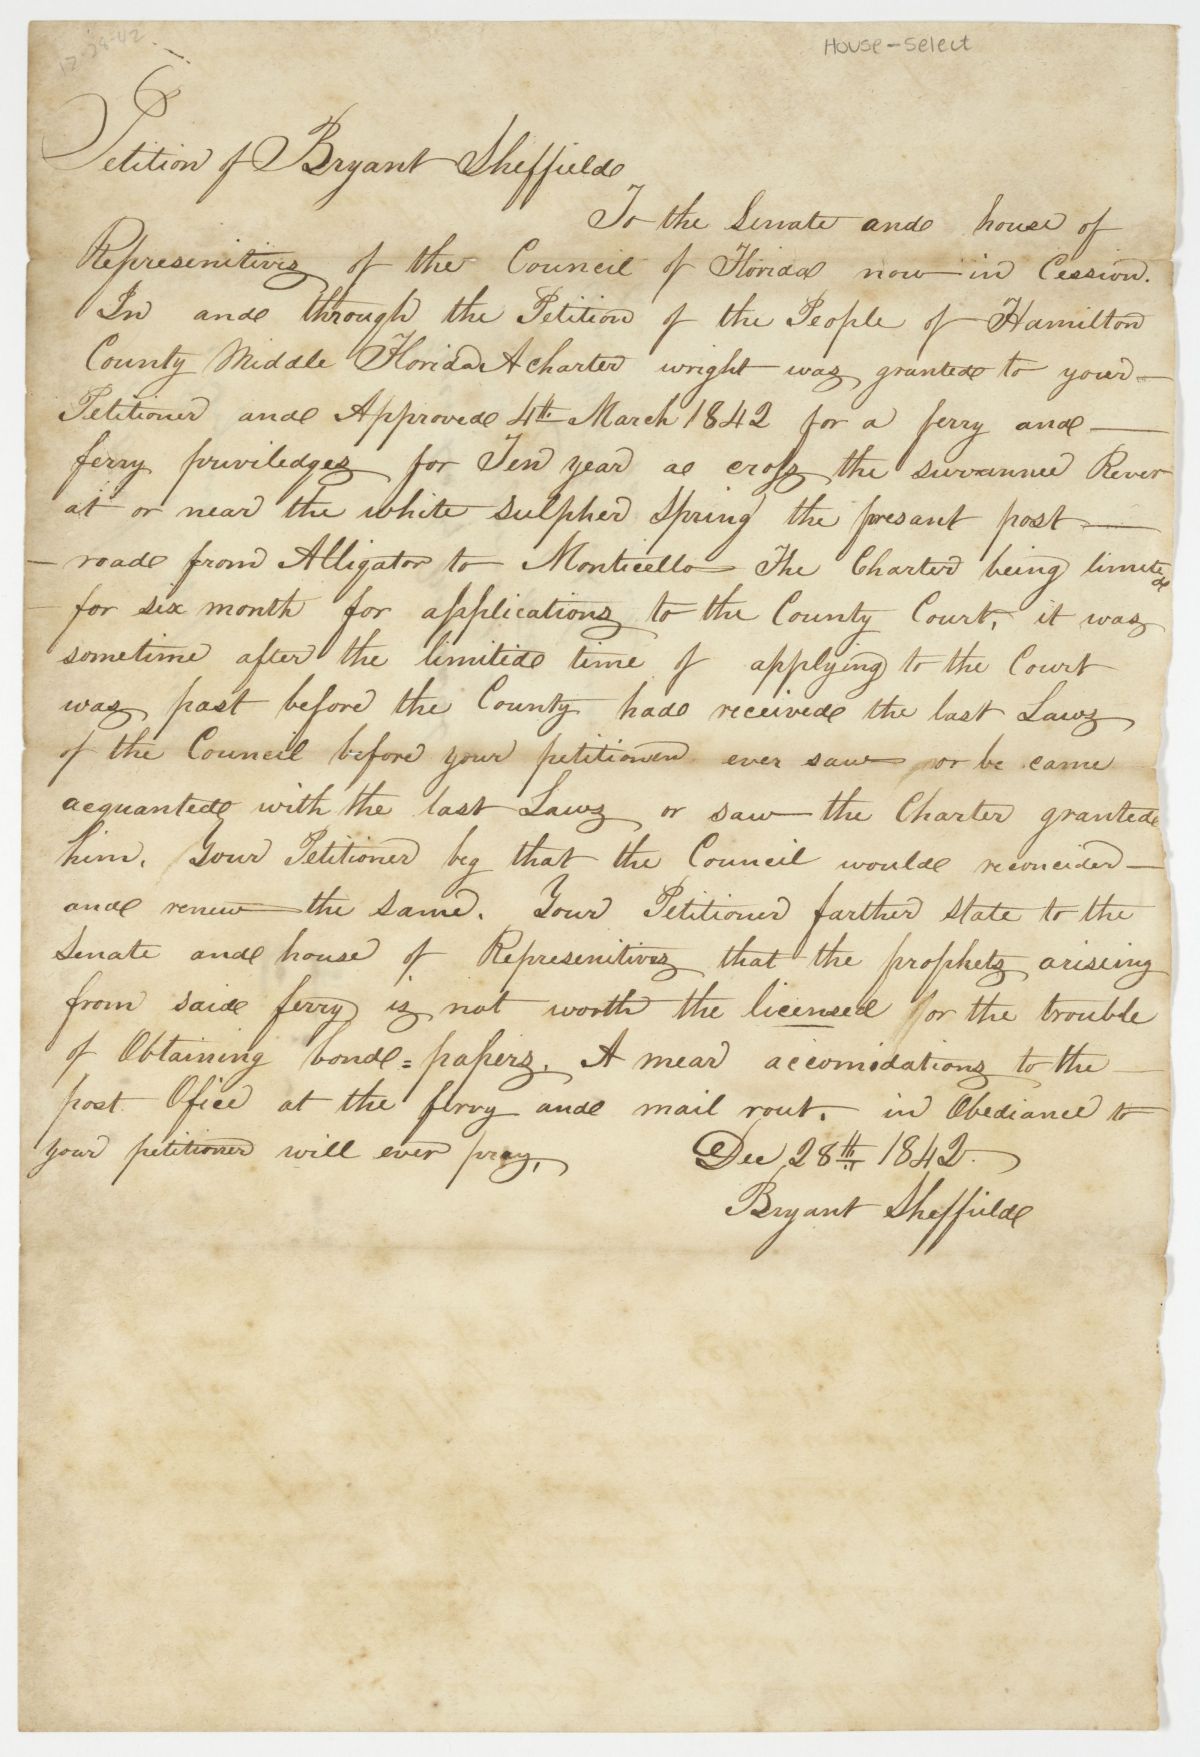 12-28-42
House-Select
Petition of Bryant Sheffield
To the Senate and house of
Represenitives of the Council of Florida now in Cession.
In and through the Petition of the People of Hamilton
County Middle Florida A charter wright was granted to your
Petitioner and Approved 4th March 1842 for a ferry and
ferry priviledges for Ten year ac cross the suwannee River
at or near the white sulpher Spring the presant post
road from Alligator to Monticello The Charter being limited
for six month for applications to the County Court, it was
sometime after the limitid time of applying to the Court
was past before the County had received the last Laws
of the Council before your petitioner ever saw or be came
acquanted with the last Laws or saw the Charter granted
him. Your Petitioner beg that the Council would reconcider
and renew the same. Your Petitioner farther state to the
Senate and house of Represenitives that the prophets arising
from said ferry is not worth the licensed for the trouble
of Obtaining bond = papers. A mear accomidations to the
post Ofice at the ferry and mail rout. in Obediance to
your petitioner will ever pray,
Dec 28th 1842
Bryant Sheffield